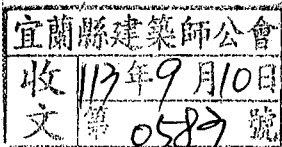 宜蘭縣建築師公會
收文
113年9月10日
第0583號